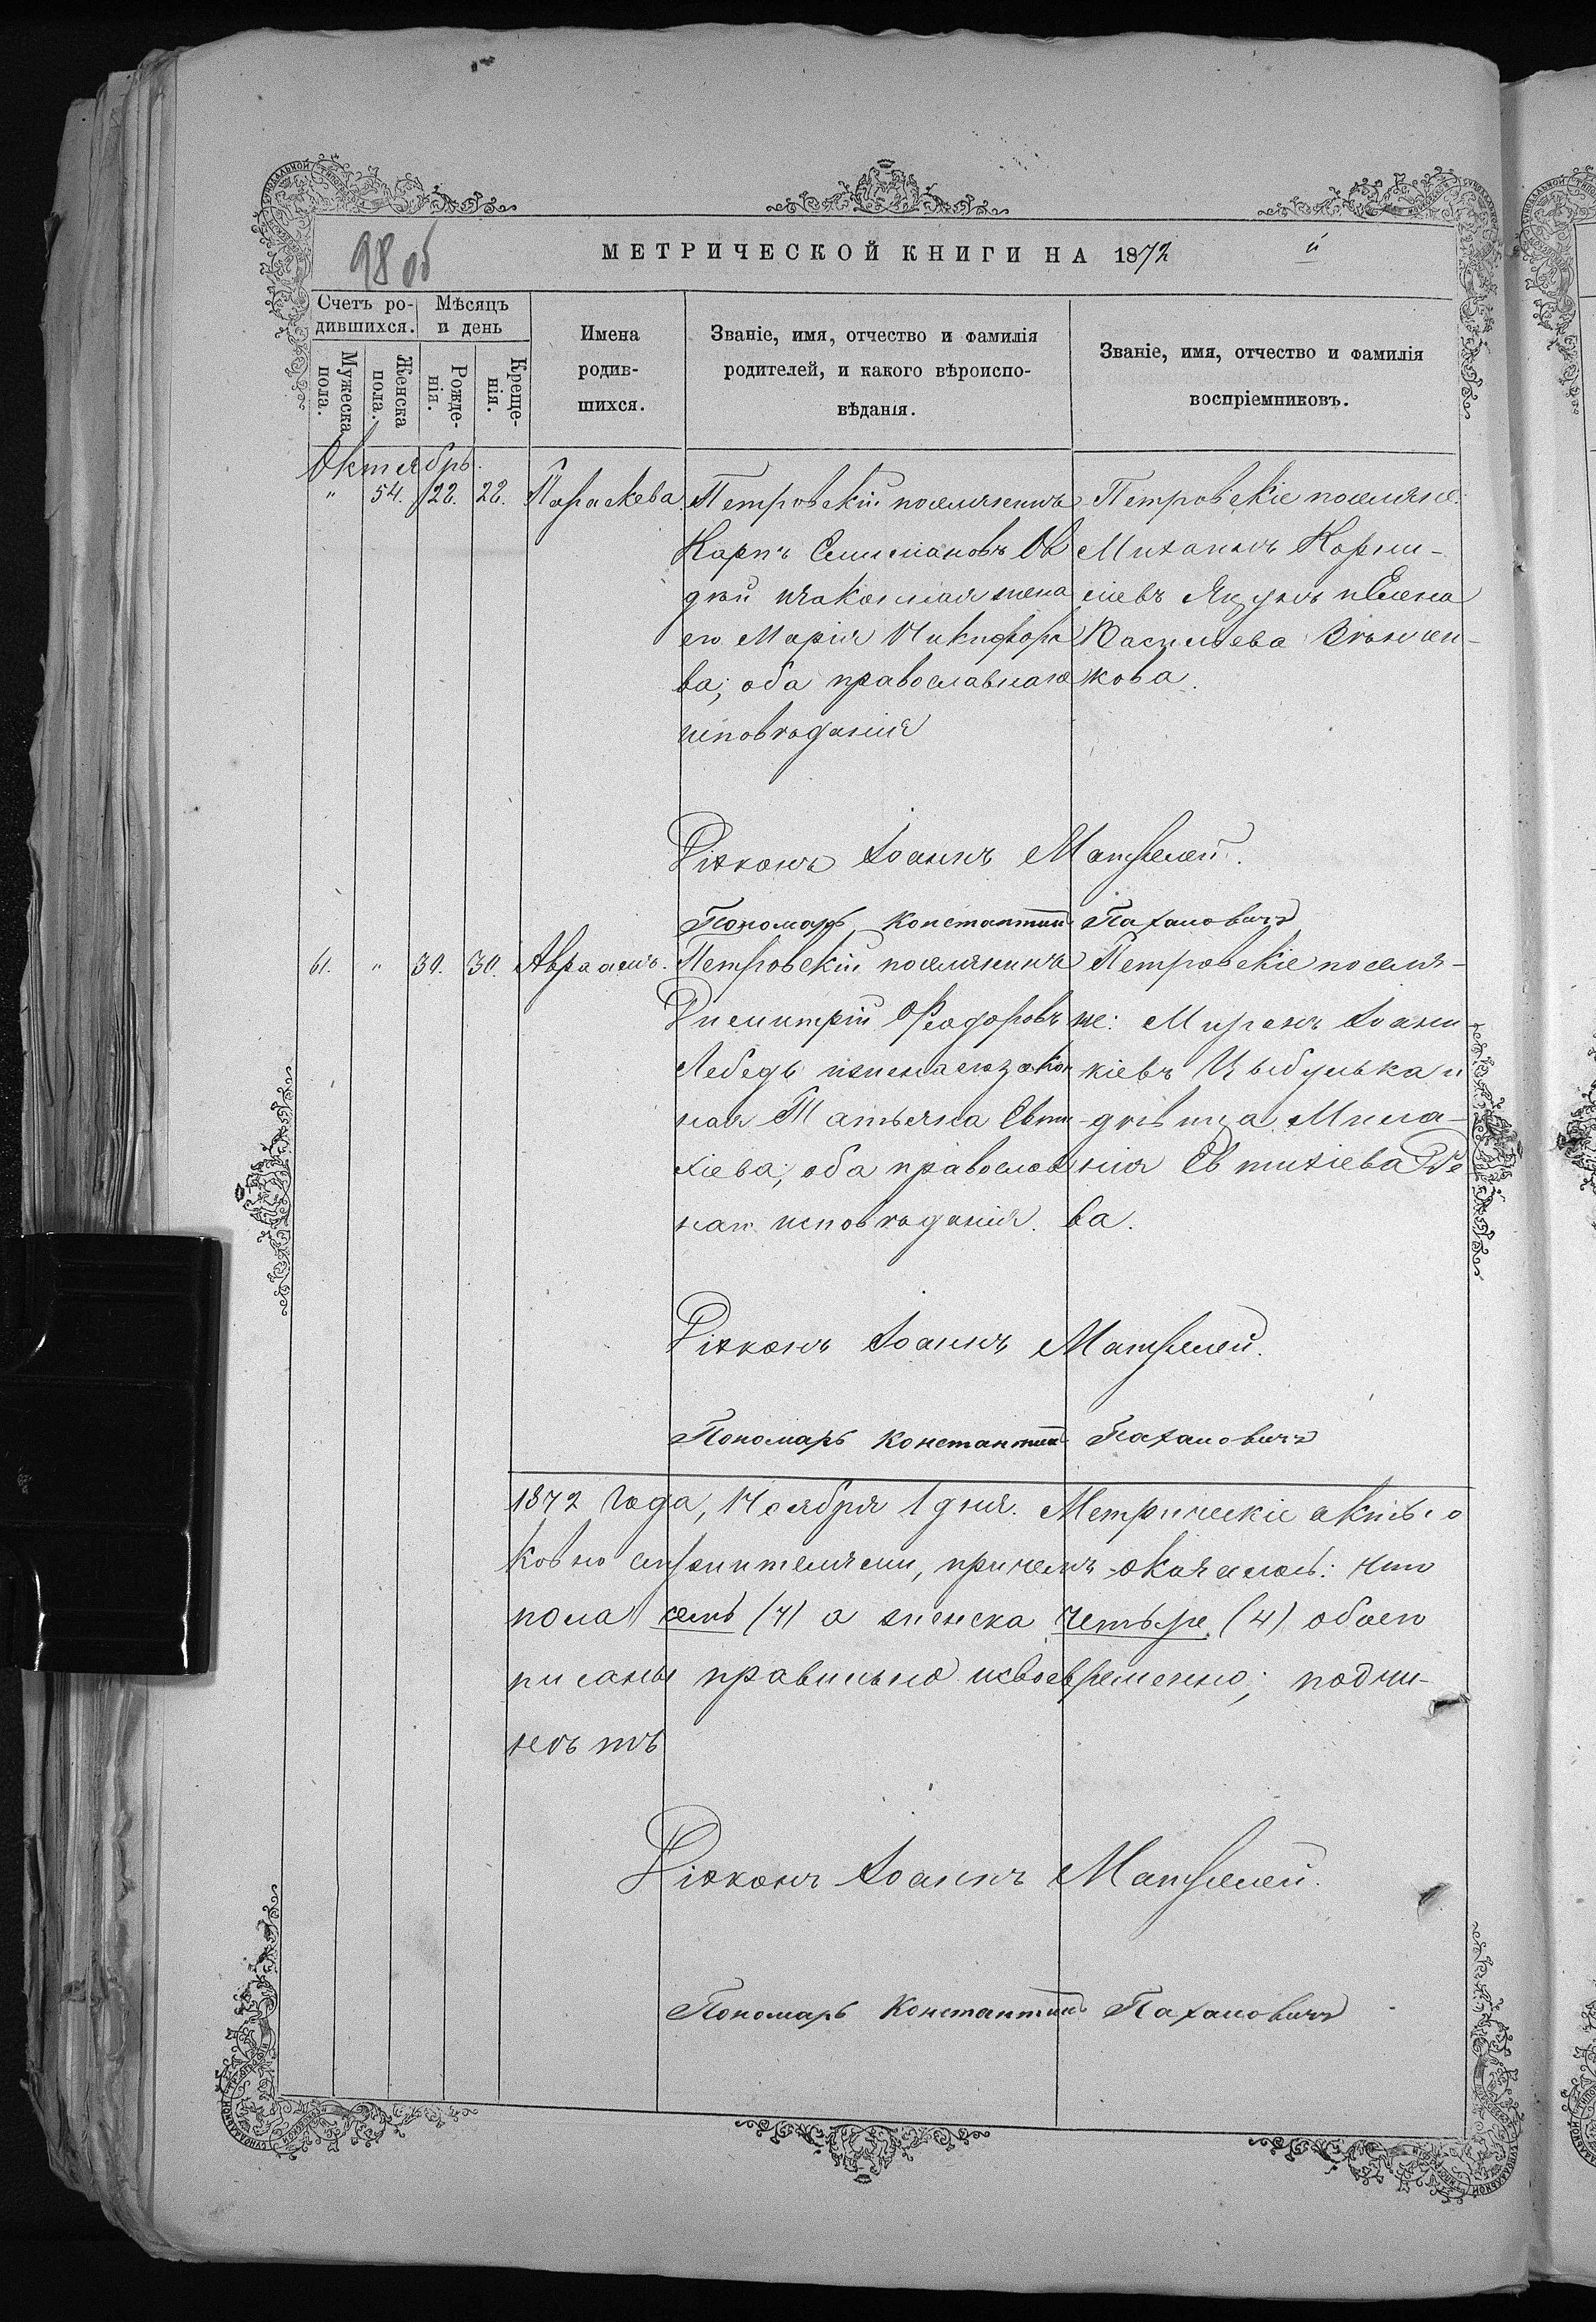 98 об
МЕТРИЧЕСКОЙ КНИГИ НА 1872 й
Счетъ ро-
дившихся.
Мужеска
пола.
Женска
пола.
Мѣсяцъ
и день
Рожде-
нія.
Креще-
нія.
Имена
родив-
шихся.
Званіе, имя, отчество и фамилія
родителей, и какого вѣроиспо-
вѣданія.
Званіе, имя, отчество и фамилія
воспріемниковъ.
Октябрь.
" 54. 22. 22. Параскева.
Петровскій поселянинъ
Карпъ Ов
дѣй и законная жена
его Марія Никифоро
ва; оба православнаго
исповѣданія
Петровскіе поселяне:
Михаилъ Корни-
ліевъ и Елена
Васильева
кова.
Діаконъ Іоаннъ Матѳелей.
Пономарь Константинъ Пахаловичъ
61. " 30. 30. Авраамъ.
Петровскій поселянинъ
Димитрій Ѳеодоровъ
Лебедь и жена его закон
ная Татьяна Евти
хіева; оба православ
наго исповѣданія.
Петровскіе поселя-
не: Миронъ Іоанни
кіевъ Цыбулька и
дѣвица Мила-
нія Евтихіева
ва.
Діаконъ Іоаннъ Матѳелей.
Пономарь Константинъ Пахаловичъ
1872 года, Ноября 1 дня. Метрическіе акты о
ковно служителями, причемъ оказалось: что
пола семь (7) а женска четыре (4) обоего
писаны правильно и своевременно; подчи-
нетъ
Діаконъ Іоаннъ Матѳелей.
Пономарь Константинъ Пахаловичъ